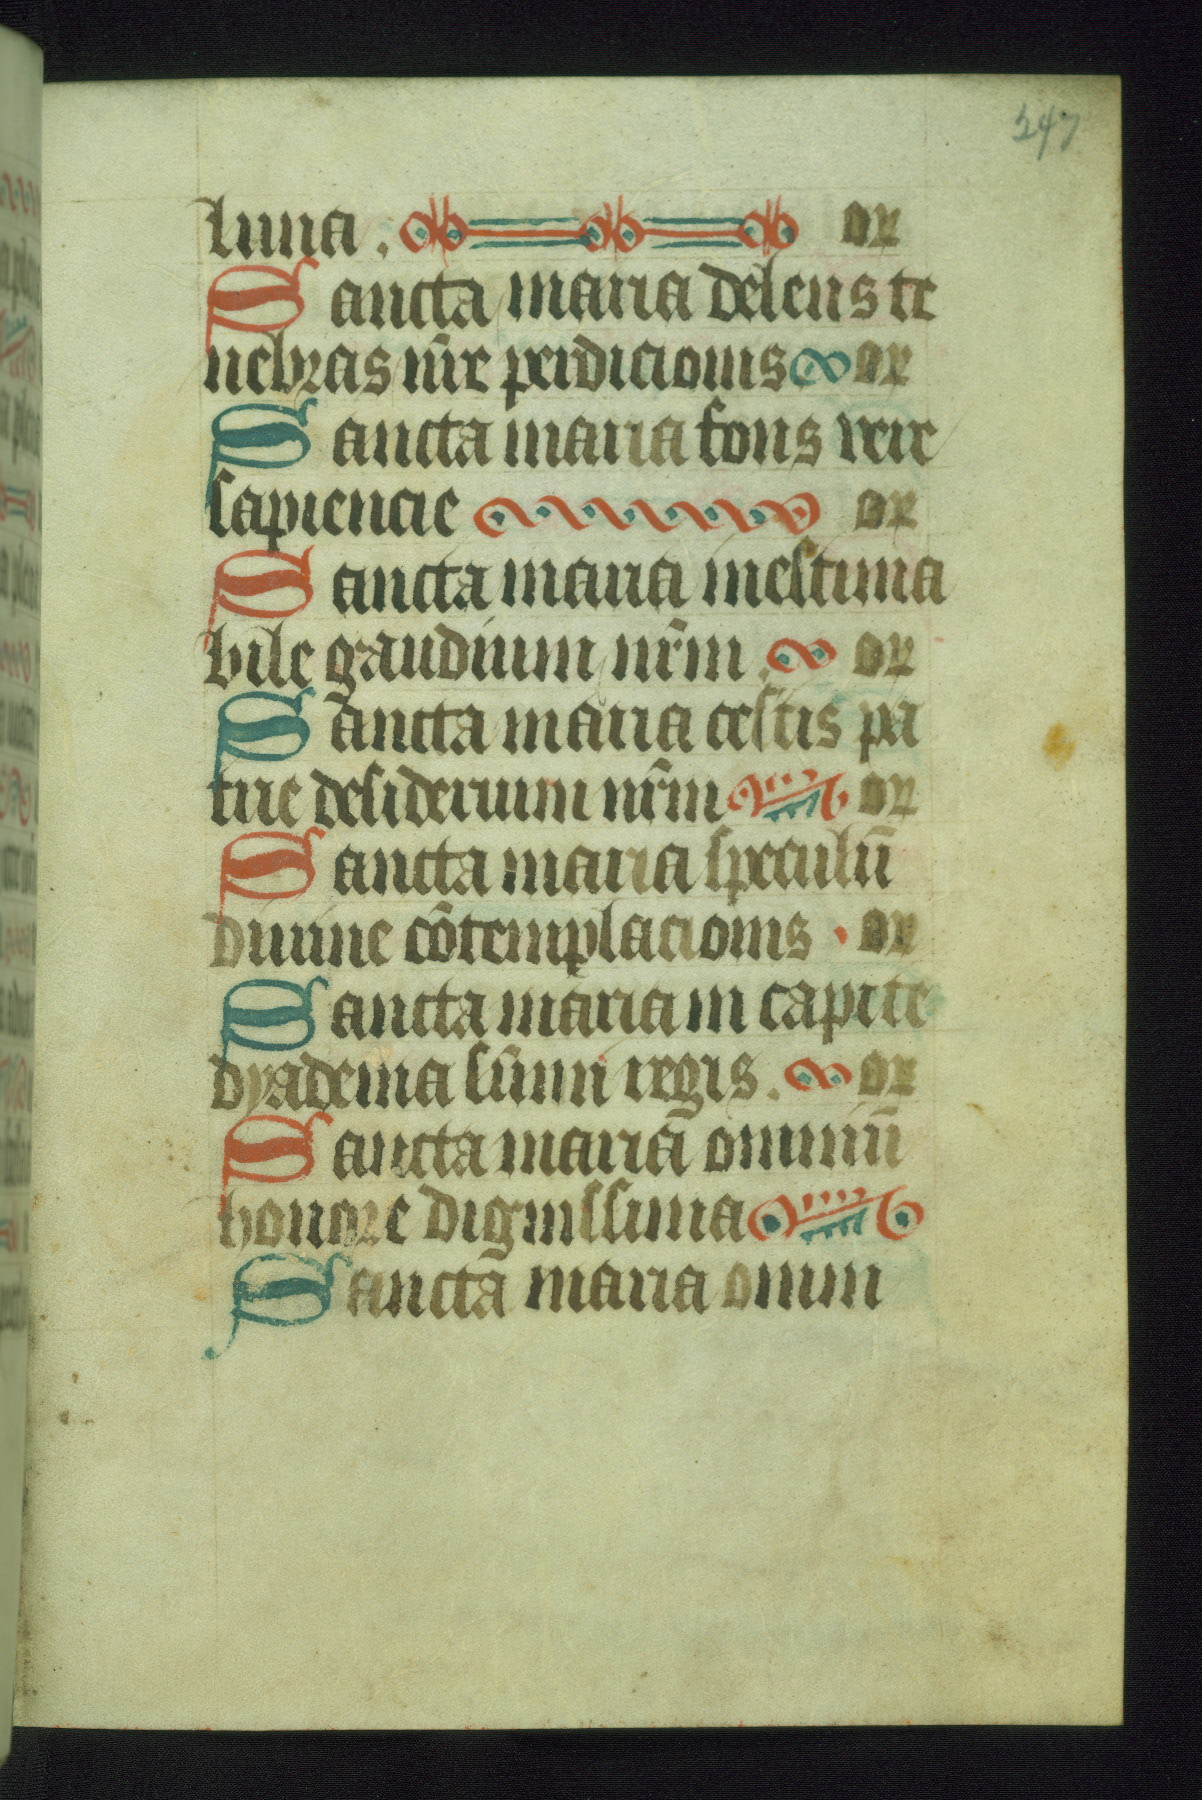 247
luna . or
Sancta maria delens te
nebras nr̄e perdicionis or
Sancta maria fons vere
sapiencie or
Sancta maria inestima
bile gaudium nr̄m . or
Sancta maria celestis pa
trie desiderium nr̄m or
Sancta maria speculū
diuine cōtemplacionis · or
Sancta maria in capite
dyadema sūmi regis . or
Sancta maria omniū
honore dignissima
Sancta maria omni